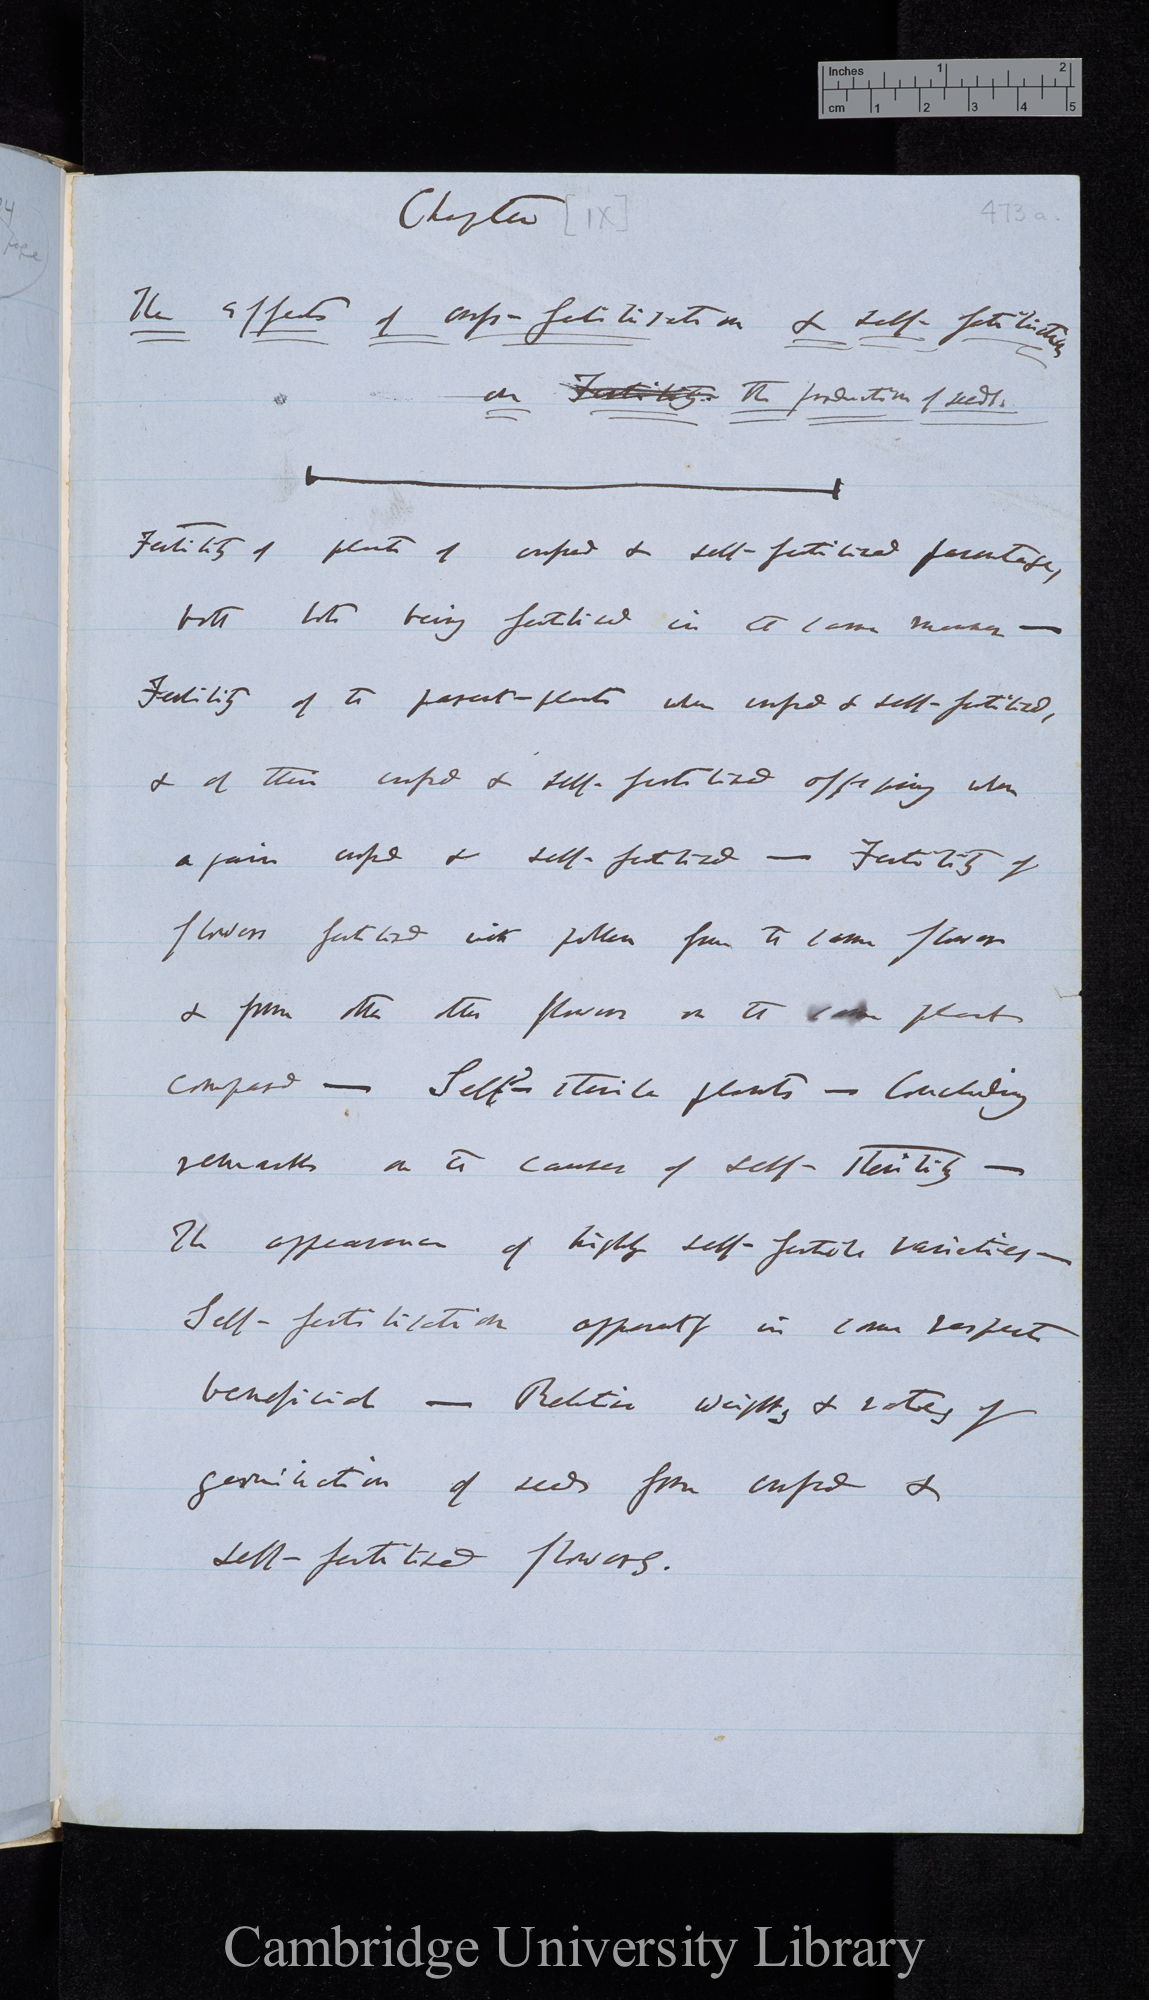 Inches 1 2
cm 1 2 3 4 5
Chapter [IX] 473a.
The effects of cross-fertilisation & self-fertilisation
on Fertility. The production of seeds.
Fertility of plants of crossed & self-fertilised parentage,
both lots being fertilised in the same manner —
Fertility of the parent-plants when crossed & self-fertilised,
& of their crossed & self-fertilised offspring when
again crossed & self-fertilised — Fertility of
flowers fertilised with pollen from the same flower
& from other flowers on the same plant
compared — Self-sterile plants — Concluding
remarks on the causes of self-sterility —
The appearance of highly self-fertile varieties —
Self-fertilisation apparently in some respects
beneficial — Relative weights & rates of
germination of seeds from crossed &
self-fertilised flowers.
Cambridge University Library